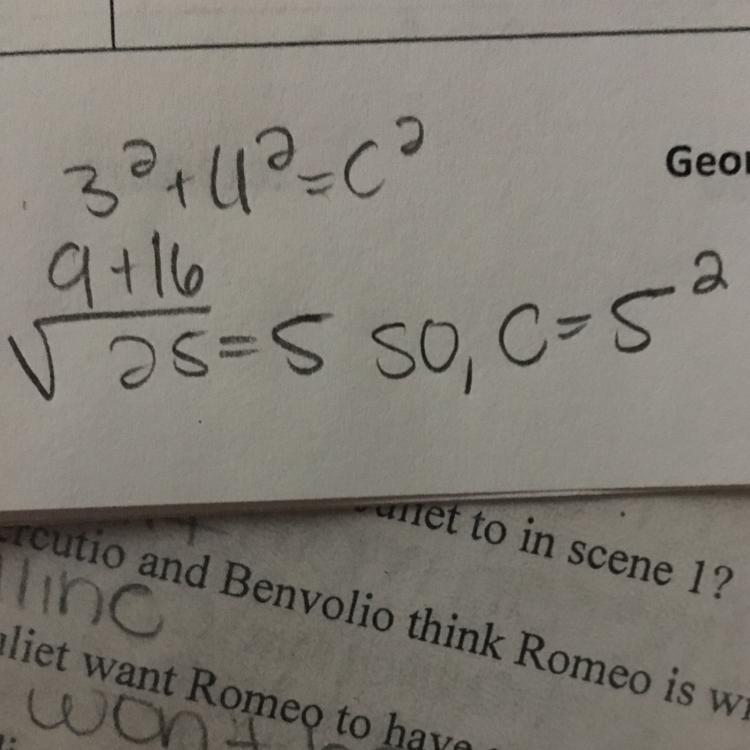 3²+4²=c²
Geor
9+16
√25=5 so, c=5²
uliet to in scene 1?
ercutio and Benvolio think Romeo is wi
uliet want Romeo to have
won't